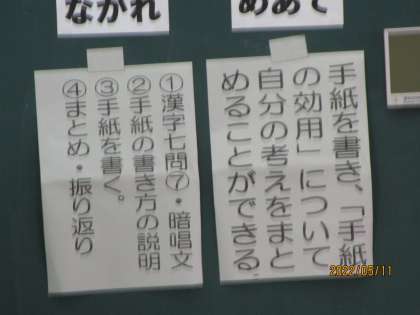 めあて
手紙を書き、「手紙
の効用」について
自分の考えをまと
めることができる。
ながれ
①漢字七問⑦・暗唱文
②手紙の書き方の説明
③手紙を書く。
④まとめ・振り返り
2022/05/11